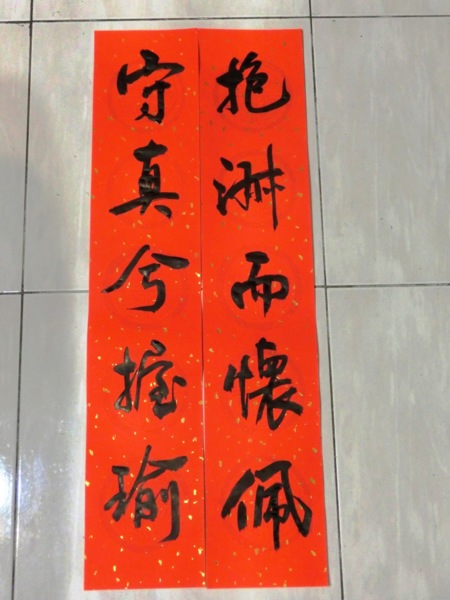 抱而懷佩
守真兮握瑜